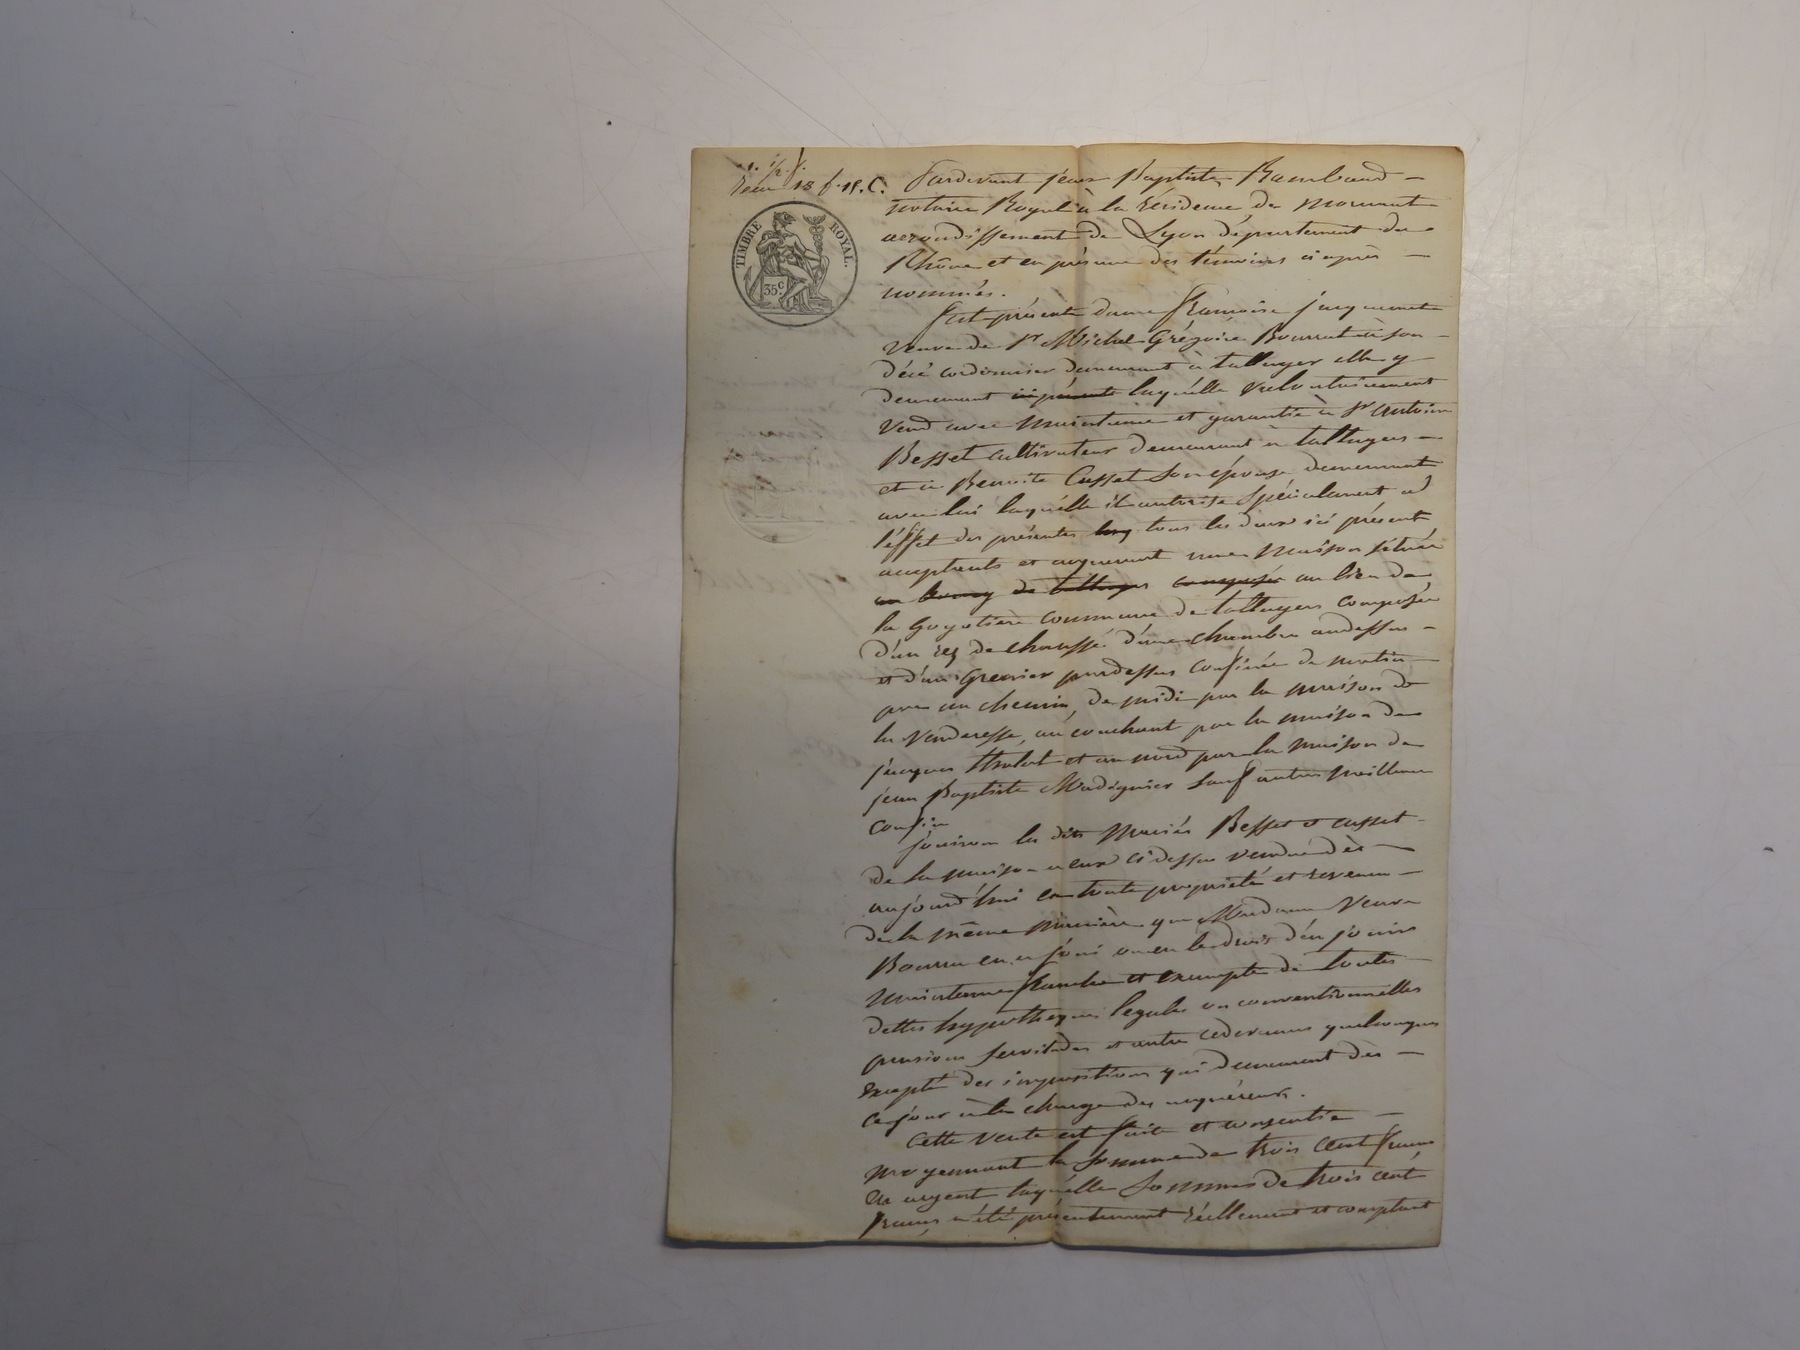 Reçu 18 f. 15. C.
TIMBRE ROYAL.
35c
Pardevant jean Baptiste Rambaud
notaire Royal à la résidence de mornant
arrondissement de Lyon département du
Rhône et en présence des témoins ci après
nommés.
fut présente dame françoise jacquemette
veuve de Sr Michel Grégoire Bourrut à son
décé cordonnier demeurant à talluyer elle y
demeurant laquélle volontairement
vend avec maintenue et garantie à Sr antoine
Besset cultivateur demeurant à talluyers
et à Benoite Cusset son épouse demeurant
avec lui laquélle il autorise spécialement à
l'éffet des présentes tous les deux ici présent
acceptants et acquerant une maison située
au bourg de talluyers composée au lieu de
la Goyotière commune de talluyers composée
d'un rez de chaussé d'une chambre audessus
et d'un Grenier pardessus confinée de matin
par un chemin, de midi par la maison de
la venderesse, au couchant par la maison de
jacques et au nord par la maison de
jean Baptiste Madignier sauf autres meilleurs
confin
jouiron les dits mariés Besset et cusset
de la maison a eux ci dessus vendue dès
aujourd'hui en toute propriété et revenu
de la même manière que Madame veuve
Bourru en a joui ou eu le droit d'en jouir
maintenue franche et exempte de toutes
dettes hypothèques légales ou conventionnelles
pension servitudes et autre redevances quelconques
excepté des impositions qui demeurent dès
ce jour à la charge des acquéreurs.
Cette vente est faite et consentie
moyennant la somme de trois cent francs
en argent laquélle somme de trois cent
francs a été présentement réellement et comptant